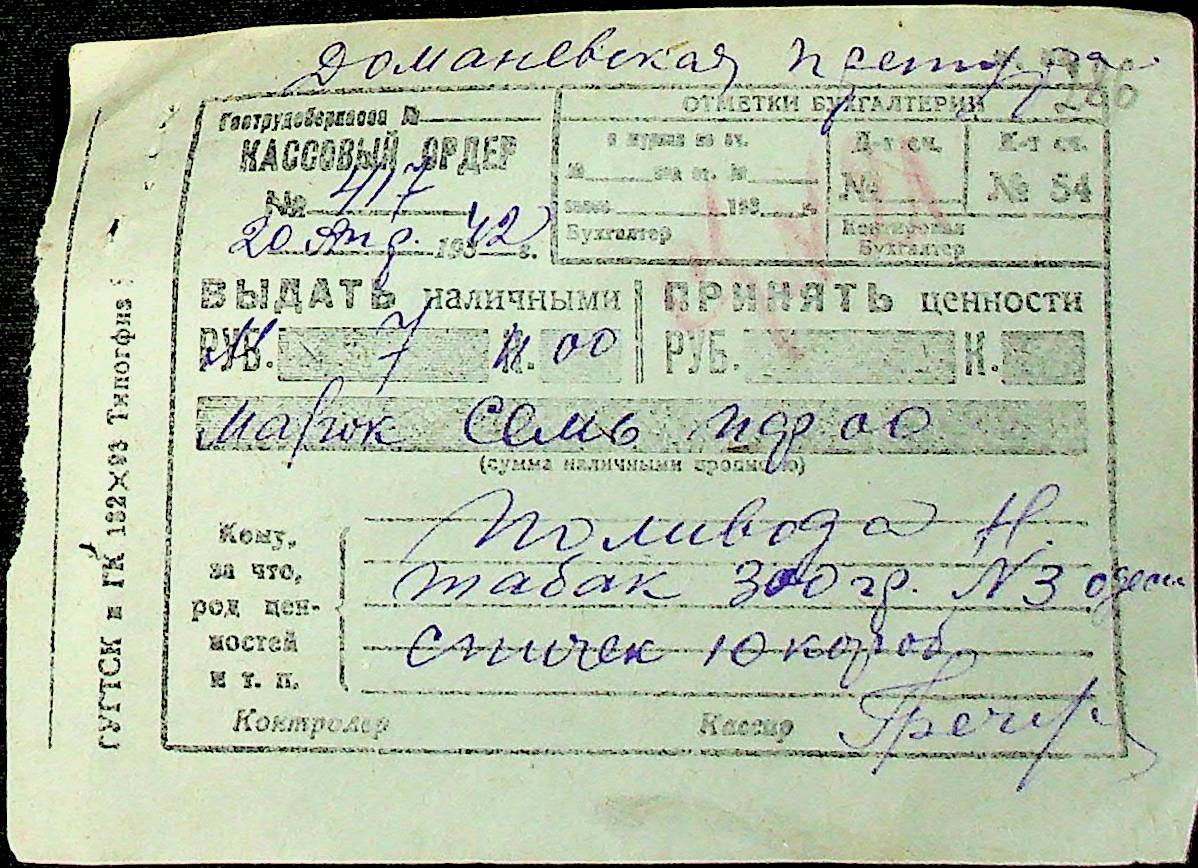 Доманевская претура
280
Гострудсберкасса №
КАССОВЫЙ ОРДЕР
№ 417
20 Янв. 1942 г.
ОТМЕТКИ БУХГАЛТЕРИИ
в журнал по сч.
№ под ст. №
193 г.
Бухгалтер
Д-т сч.
№
К-т сч.
№ 54
Бухгалтер
ВЫДАТЬ наличными
РУБ. 7 К. 00
ПРИНЯТЬ ценности
РУБ. К.
марок семь пф 00
(сумма наличными прописью)
Кому,
за что,
род цен-
ностей
и т. п.
Поливода Н.
табак 300 гр. N3
спичек 10 короб.
Контролер Кассир
ГУГТСК и ГК 182×93